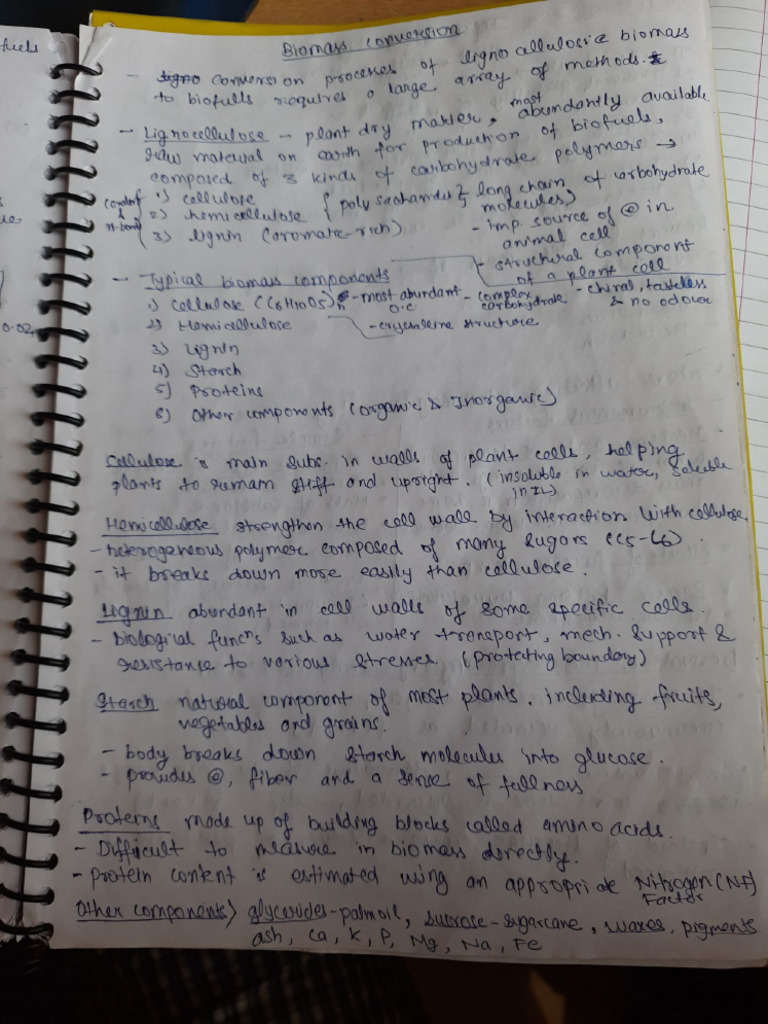 fuels
Biomass conversion
- conversion processes of ligno cellulosic biomass
to biofuells requires a large array of methods.
- Lignocellulose - plant dry matter, most abundantly available
raw material on earth for production of biofuels,
composed of 3 kinds of carbohydrate polymers →
1) cellulose { polysacharides } long chain of carbohydrate
2) hemicellulose molecules)
3) lignin (aromatic-rich) - imp. source of @ in
animal cell
- structural component
of a plant cell
- Typical biomass components
1) cellulose (C6H10O5)n - most abundant - complex - chiral, tasteless
o.c. carbohydrate & no odour
2) Hemicellulose - crystalline structure
3) Lignin
4) Starch
5) Proteins
6) Other components (organic & Inorganic)
0.02
Cellulose is main subs. in walls of plant cells, helping
plants to remain stiff and upright. (insoluble in water, soluble
in IL)
Hemicellulose strengthen the cell wall by interaction with cellulose
- heterogeneous polymer composed of many sugars (C5-C6).
- it breaks down more easily than cellulose.
Lignin abundant in cell walls of some specific cells.
- biological funcns such as water transport, mech. support &
resistance to various stresses. (protecting boundary)
Starch natural component of most plants, including fruits,
vegetables and grains.
- body breaks down starch molecules into glucose.
- provides @, fiber and a sense of fullness
Proteins made up of building blocks called amino acids.
- Difficult to measure in biomass directly.
- protein content is estimated using an appropriate Nitrogen (NF)
Factor
Other components) glycerides-palmoil, sucrose-sugarcane, waxes, pigments
ash, Ca, K, P, Mg, Na, Fe